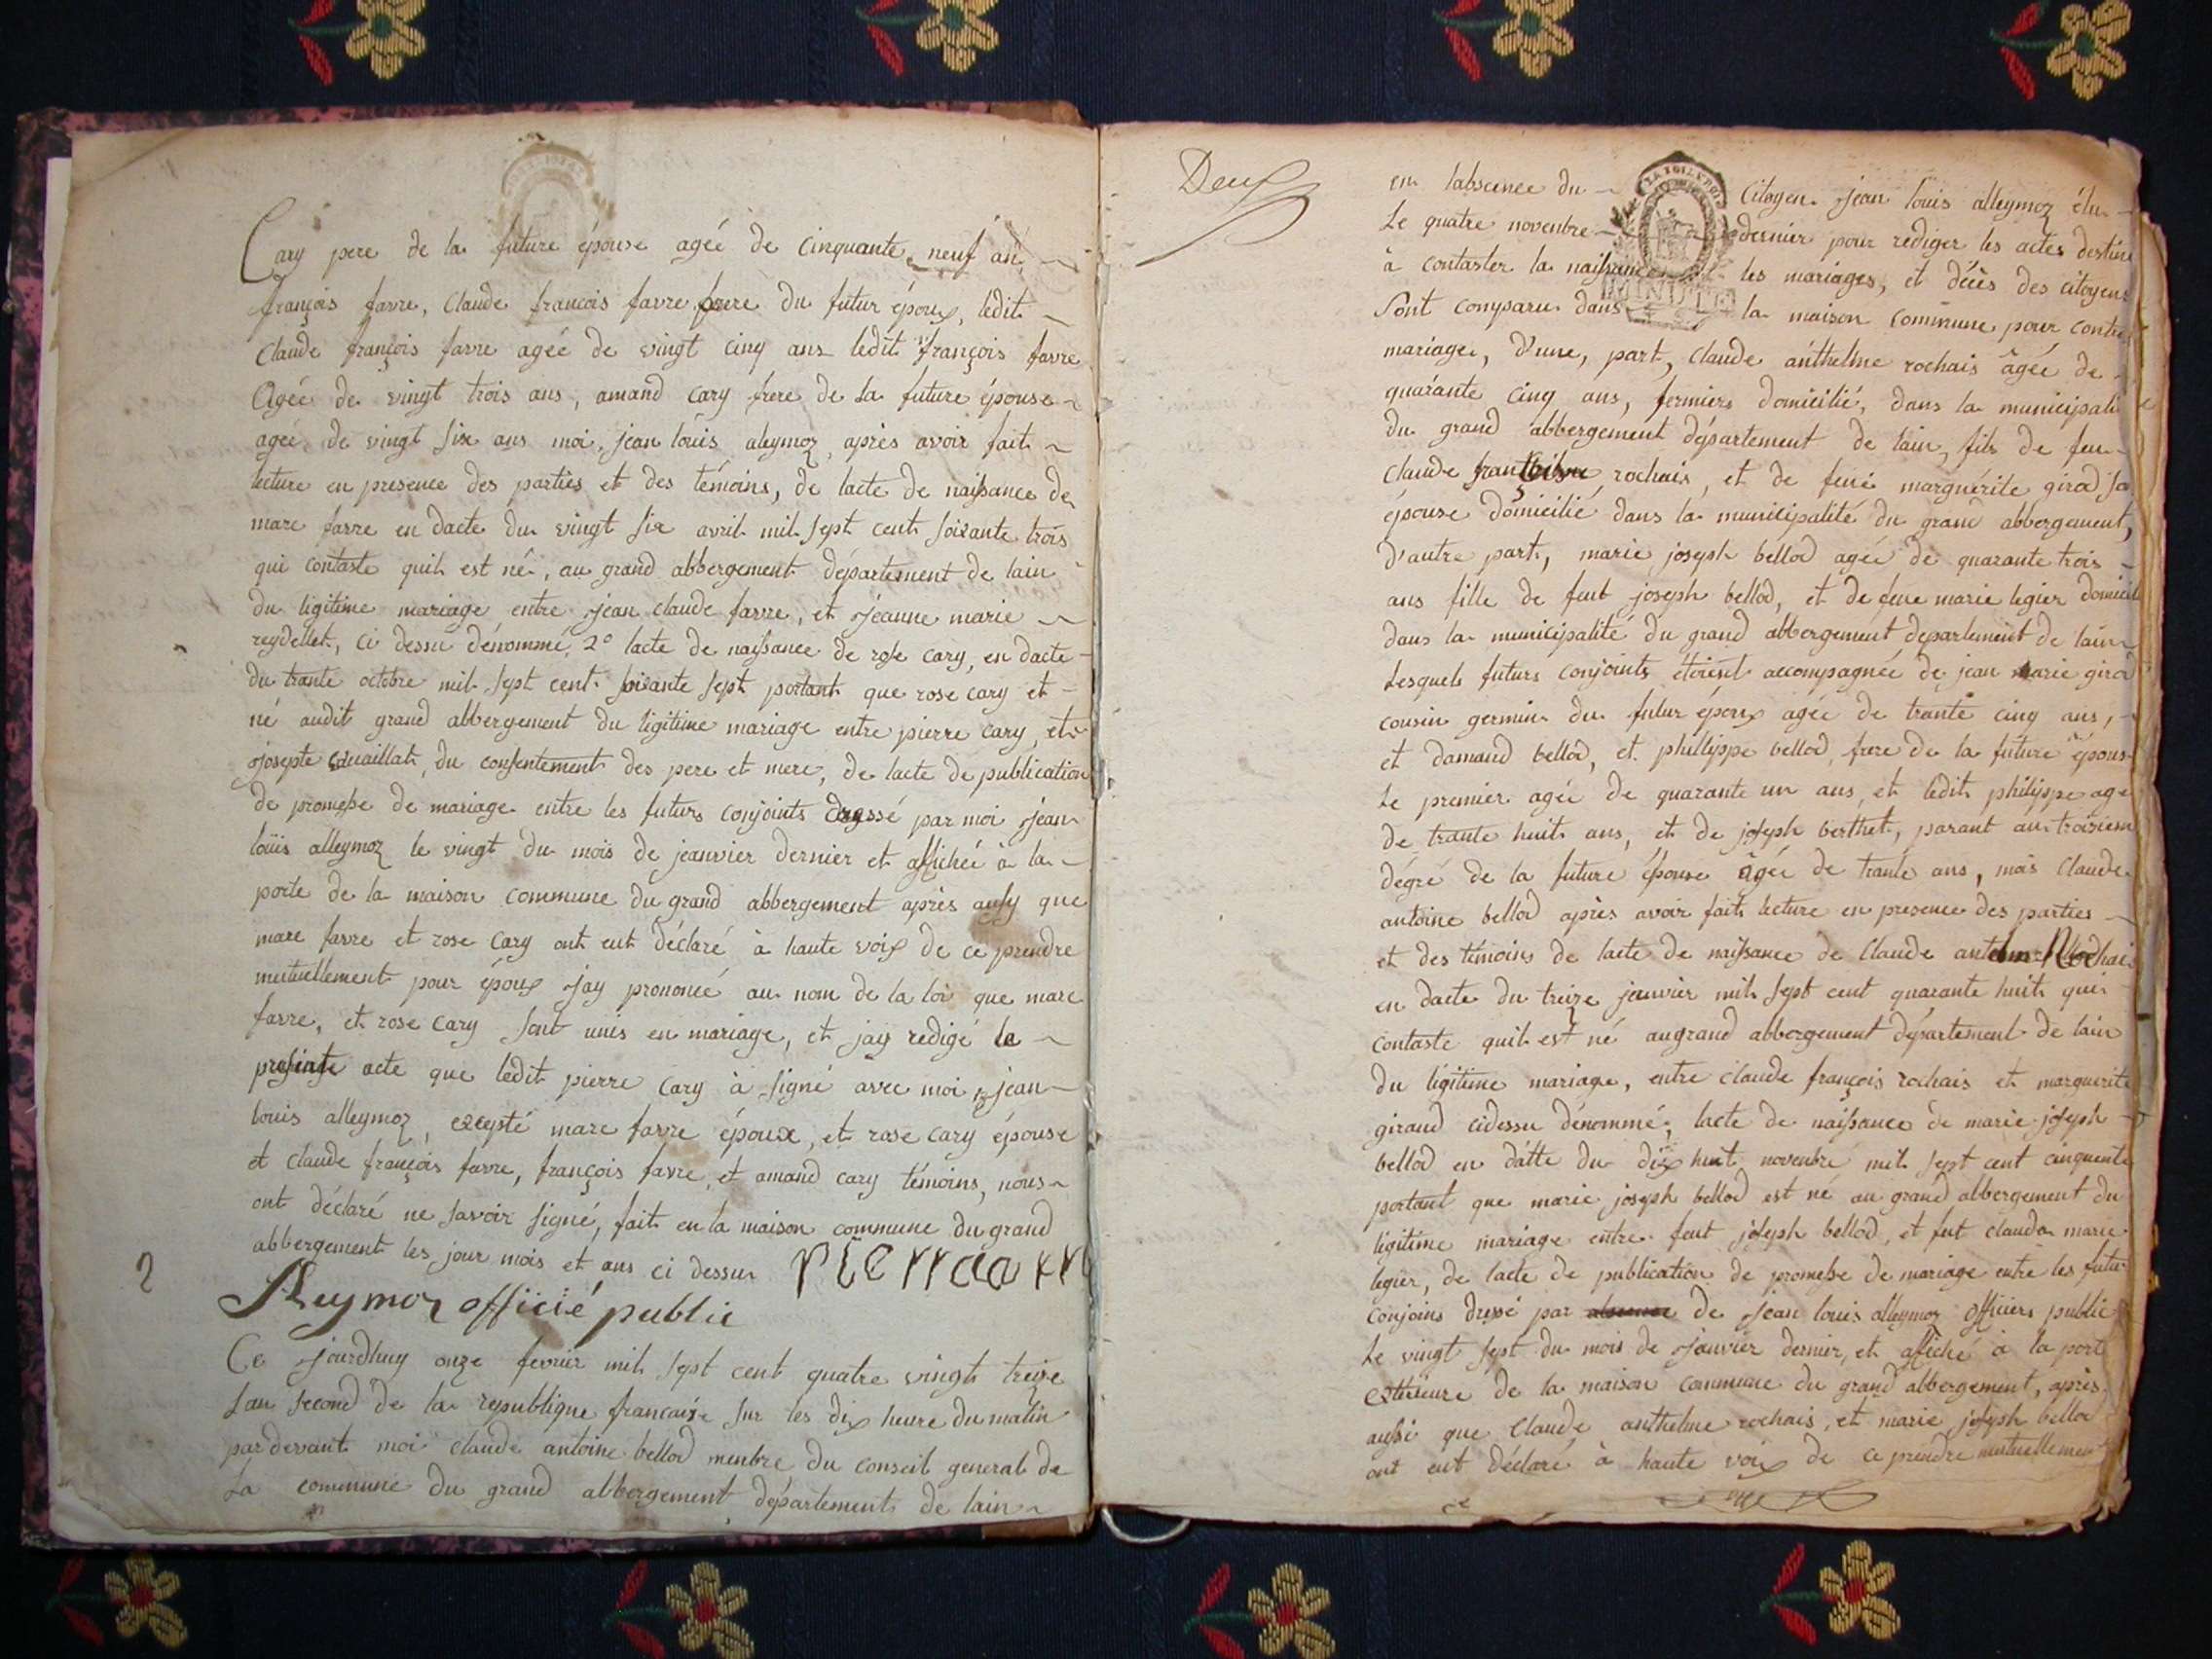 Cary pere de la future épouse agée de cinquante neuf an
françois favre, claude francois favre frere du futur époux, ledit
claude françois favre agée de vingt cinq ans ledit françois favre
agée de vingt trois ans, amand cary frere de la future épouse
agée de vingt six ans moi jean loüis aleymoz, après avoir fait
lecture en presence des parties et des témoins, de lacte de naissance de
marc favre en dacte du vingt six avril mil sept cent soixante trois
qui contaste quil est né, au grand abbergement département de lain
du ligitime mariage entre jean claude favre, et jeanne marie
reydellet, ci dessu dénommé, 2° lacte de naissance de rose cary, en dacte
du trante octobre mil sept cent soixante sept portant que rose cary et
né audit grand abbergement du ligitime mariage entre pierre cary, et
josepte du consentement des pere et mere, de lacte de publication
de promesse de mariage entre les futurs conjoints dressé par moi jean
loüis alleymoz le vingt du mois de jeanvier dernier et affichée à la
porte de la maison commune du grand abbergement après aussy que
marc favre et rose cary ont eut déclaré à haute voix de ce prendre
mutuellement pour époux jay prononcé au nom de la loi que marc
favre, et rose cary sont unis en mariage, et jay redigé le
presente acte que ledit pierre cary à signé avec moi jean
louis alleymoz, excepté marc favre époux, et rose cary épouse
et claude françois favre, françois favre, et amand cary témoins, nous
ont déclaré ne savoir signé, fait en la maison commune du grand
abbergement les jour mois et ans ci dessur
2
Aleymoz officié public
Ce jourdhuy onze fevrier mil sept cent quatre vingt treize
lan second de la republique francaise sur les dix heure du matin
pardevant moi claude antoine bellod menbre du conseil general de
la commune du grand abbergement département de lain
Deux
en labscence du citoyen jean louis alleymoz élu
le quatre novenbre dernier pour rediger les actes destiné
à contaster la naissance les mariages, et décès des citoyens
sont comparu dans la maison commune pour contre
mariage, d'une, part, claude anthelme rochais âgée de
quarante cinq ans, fermiers domicilié, dans la municipali
du grand abbergement département de lain, fils de feu
claude rochais, et de feüe marguérite girod sa
épouse domicilié dans la municipalité du grand abbergement,
d'autre part, marie joseph bellod agée de quarante trois
ans fille de feut joseph bellod, et de feue marie legier domicili
dans la municipalité du grand abbergement departement de lain
lesquels futurs conjoints étoient accompagnée de jean marie giro
cousin germin du futur époux agée de trante cinq ans,
et damand bellod, et phillippe bellod, frere de la future épous
le premier agée de quarante un ans, et ledit philippe age
de trante huit ans, et de joseph berthet, parant au troisiem
dégré de la future épouse âgée de trante ans, mois claude
antoine bellod après avoir fait lecture en presence des parties
et des témoins de lacte de naissance de claude antelme Rochais
en dacte du treize janvier mil sept cent quarante huit qui
contaste quil est né augrand abbergement département de lain
du ligitime mariage, entre claude françois rochais et marguerite
giraud cidessu dénommé, lacte de naissance de marie joseph
bellod en datte du dix huit novenbre mil sept cent cinquente
portant que marie joseph bellod est né au grand albergement du
legitime mariage entre feut joseph bellod, et fut clauda marie
legier, de lacte de publication de promesse de mariage entre les futu
conjoins dressé par de jean louis alleymoz officiers public
le vingt sept du mois de janvier dernier, et affiché à la porte
extérieure de la maison commune du grand albergement, après
aussi que claude anthelme rochais, et marie joseph bellod
ont eut déclaré à haute voix de ce prendre mutuellement